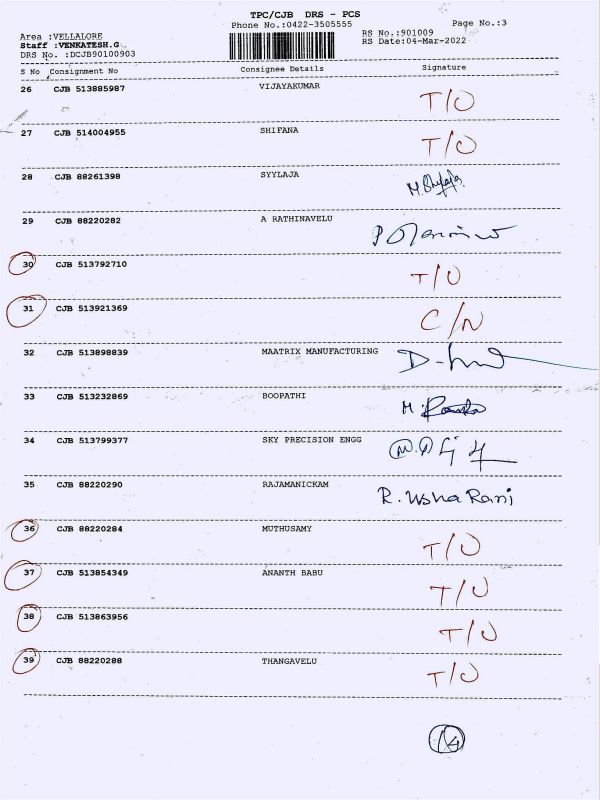 TPC/CJB DRS - PCS
Phone No.:0422-3505555
Page No.:3
Area :VELLALORE
Staff :VENKATESH.G
DRS No. :DCJB90100903
RS No.:901009
RS Date:04-Mar-2022
S No Consignment No Consignee Details Signature
26 CJB 513885987 VIJAYAKUMAR T/O
27 CJB 514004955 SHIFANA T/O
28 CJB 88261398 SYYLAJA
29 CJB 88220282 A RATHINAVELU
30 CJB 513792710 T/O
31 CJB 513921369 C/N
32 CJB 513898839 MAATRIX MANUFACTURING
33 CJB 513232869 BOOPATHI
34 CJB 513799377 SKY PRECISION ENGG
35 CJB 88220290 RAJAMANICKAM R. Usha Rani
36 CJB 88220284 MUTHUSAMY T/O
37 CJB 513854349 ANANTH BABU T/O
38 CJB 513863956 T/O
39 CJB 88220288 THANGAVELU T/O
14